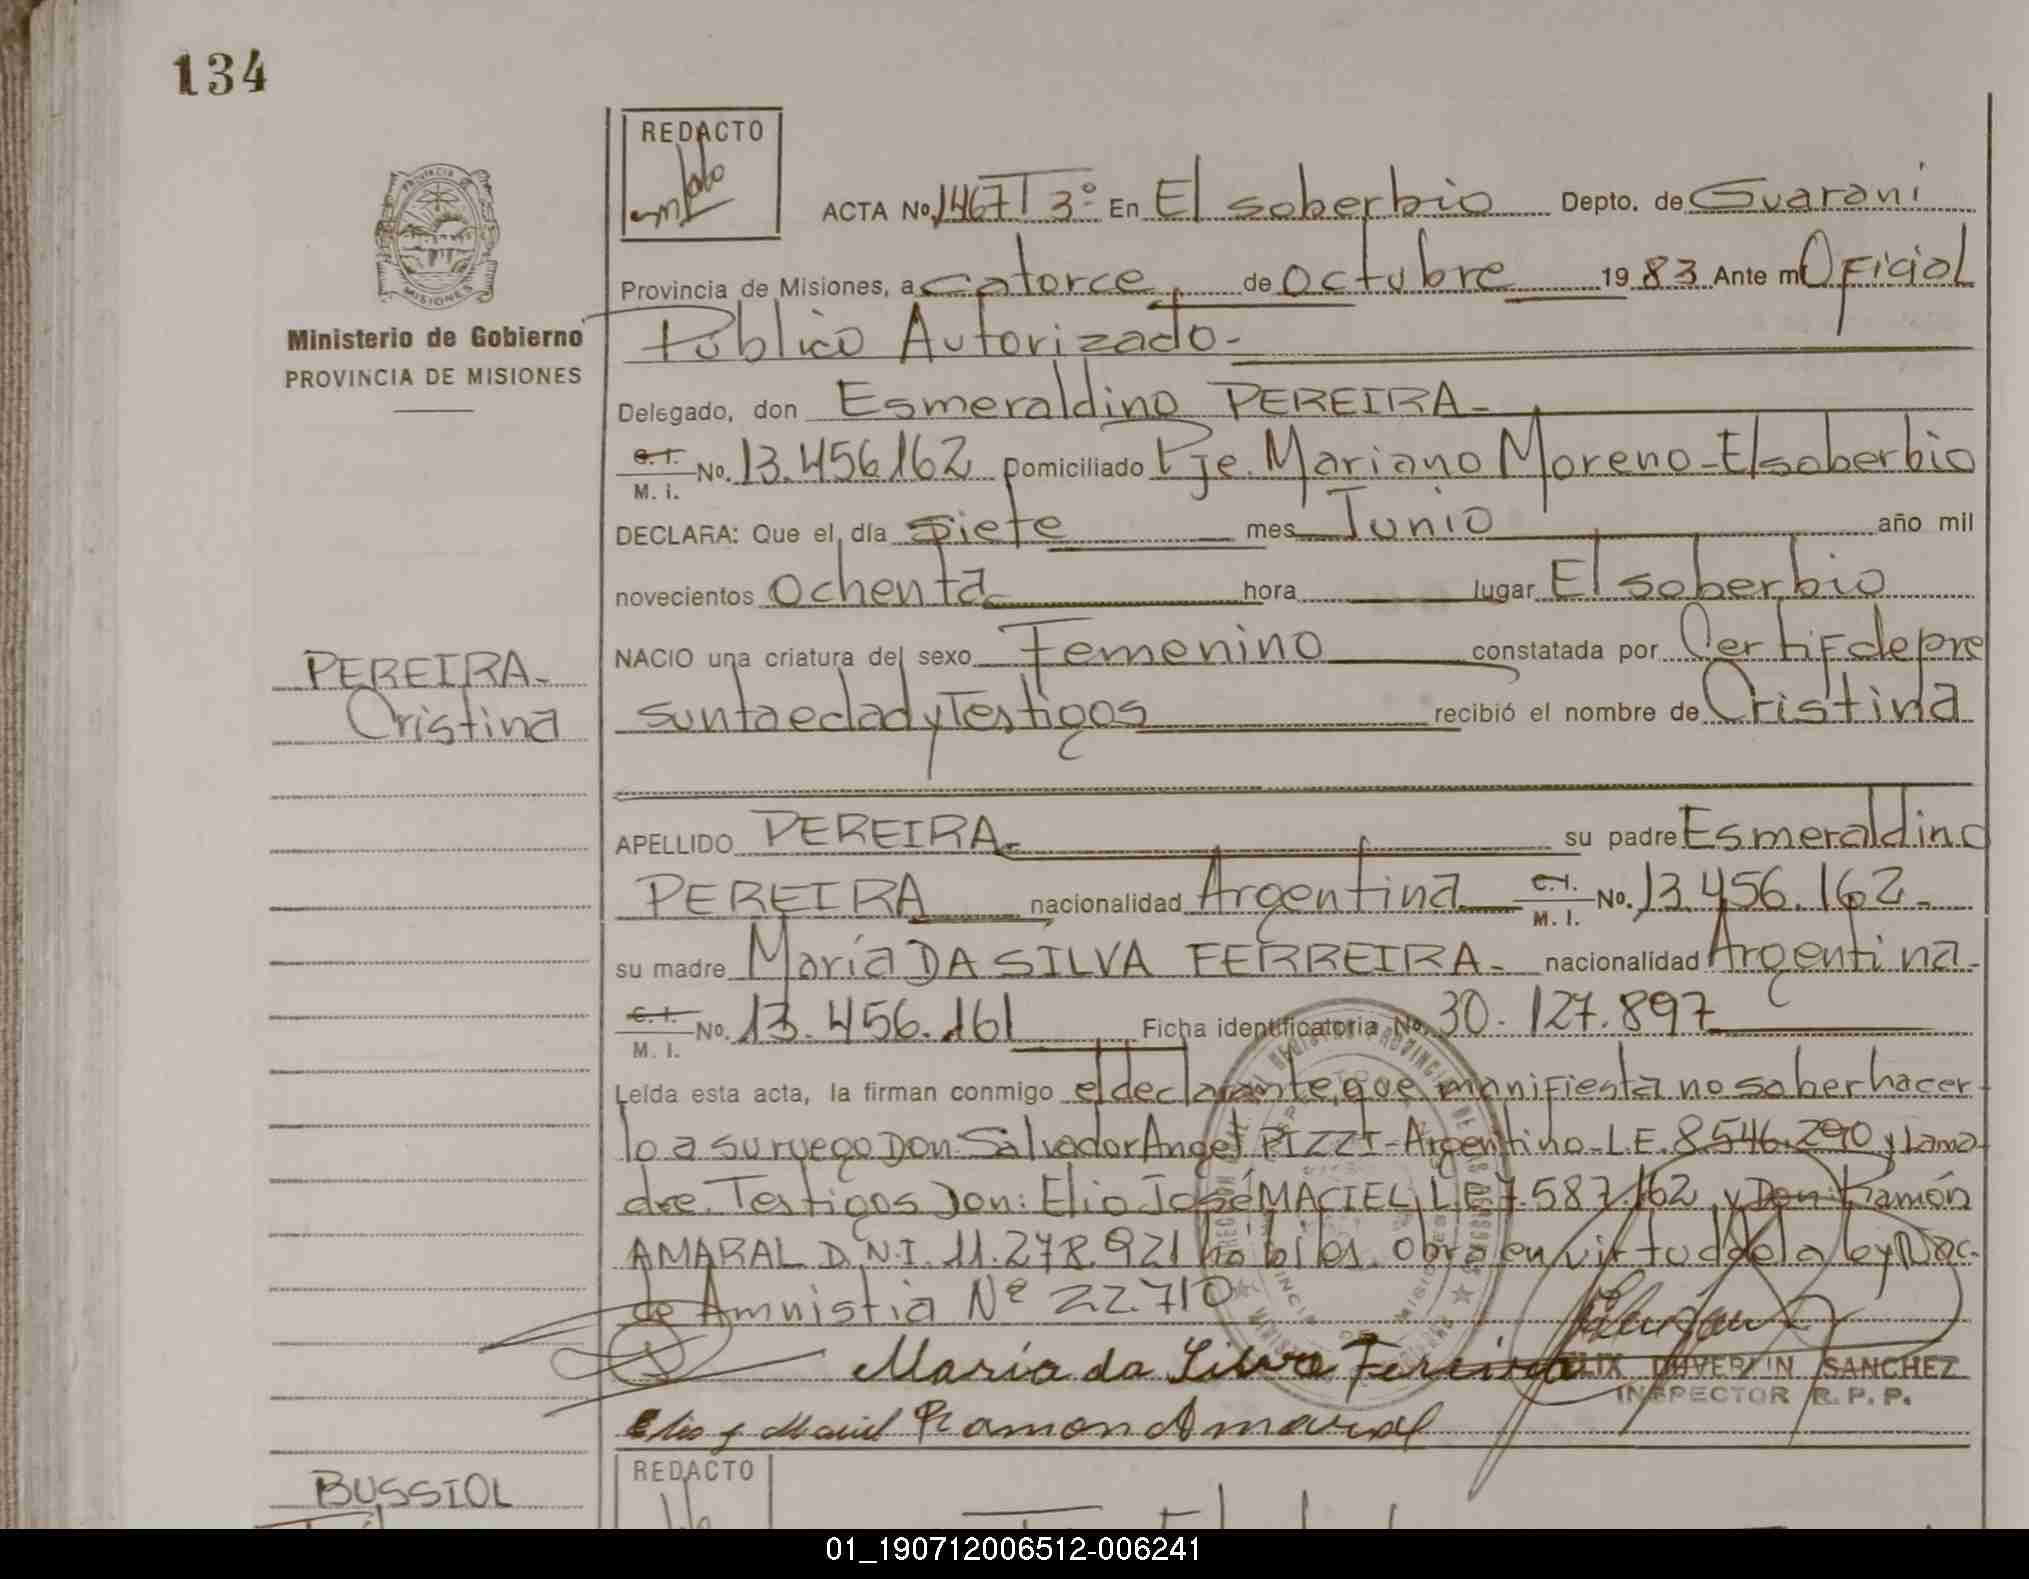 134
REDACTO
ACTA No. 1467 T 3º En El soberbio Depto. de Guarani
PROVINCIA DE
MISIONES
Provincia de Misiones, a catorce de octubre 1983 Ante mi Oficial
Ministerio de Gobierno
PROVINCIA DE MISIONES
Público Autorizado-
Delegado, don Esmeraldino PEREIRA-
C. I.
M. i. No. 13.456.162 Domiciliado Pje. Mariano Moreno-El soberbio
DECLARA: Que el día siete mes Junio año mil
novecientos ochenta hora lugar El soberbio
NACIO una criatura del sexo Femenino constatada por Certif de pre
PEREIRA-
Cristina
sunta edad y Testigos recibió el nombre de Cristina
APELLIDO PEREIRA- su padre Esmeraldino
PEREIRA nacionalidad Argentina C. I.
M. I. No. 13.456.162-
su madre María DA SILVA FERREIRA- nacionalidad Argentina-
C. I.
M. I. No. 13.456.161 Ficha identificatoria No. 30.127.897
Leída esta acta, la firman conmigo el declarante, que manifiesta no saber hacer-
lo a su ruego Don Salvador Angel PIZZI-Argentino-L.E. 8.546.290 y la ma-
dre. Testigos Don: Elio José MACIEL L.E 7.587.162 y Don Ramón
AMARAL D.N.I. 11.278.921 hábiles. Obra en virtud de la ley Nac.
de Amnistia Nº 22.710
María da Silva Fereira
FELIX DUVERLIN SANCHEZ
INSPECTOR R. P. P.
Elio J Maciel Ramon Amaral
BUSSIOL
REDACTO
01_190712006512-006241